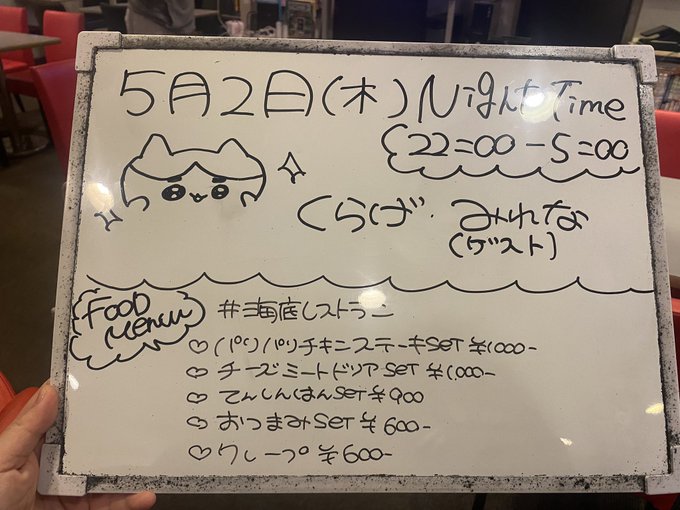 5月2日(木) Night Time
22:00-5:00
くらげ・みれな
(ゲスト)
FOOD
Menu
#海底レストラン
♡パリパリチキンステーキSET ¥1000-
♡チーズミートドリアSET ¥1,000-
♡てんしんはんSET ¥900
♡おつまみSET ¥600-
♡クレープ ¥600-